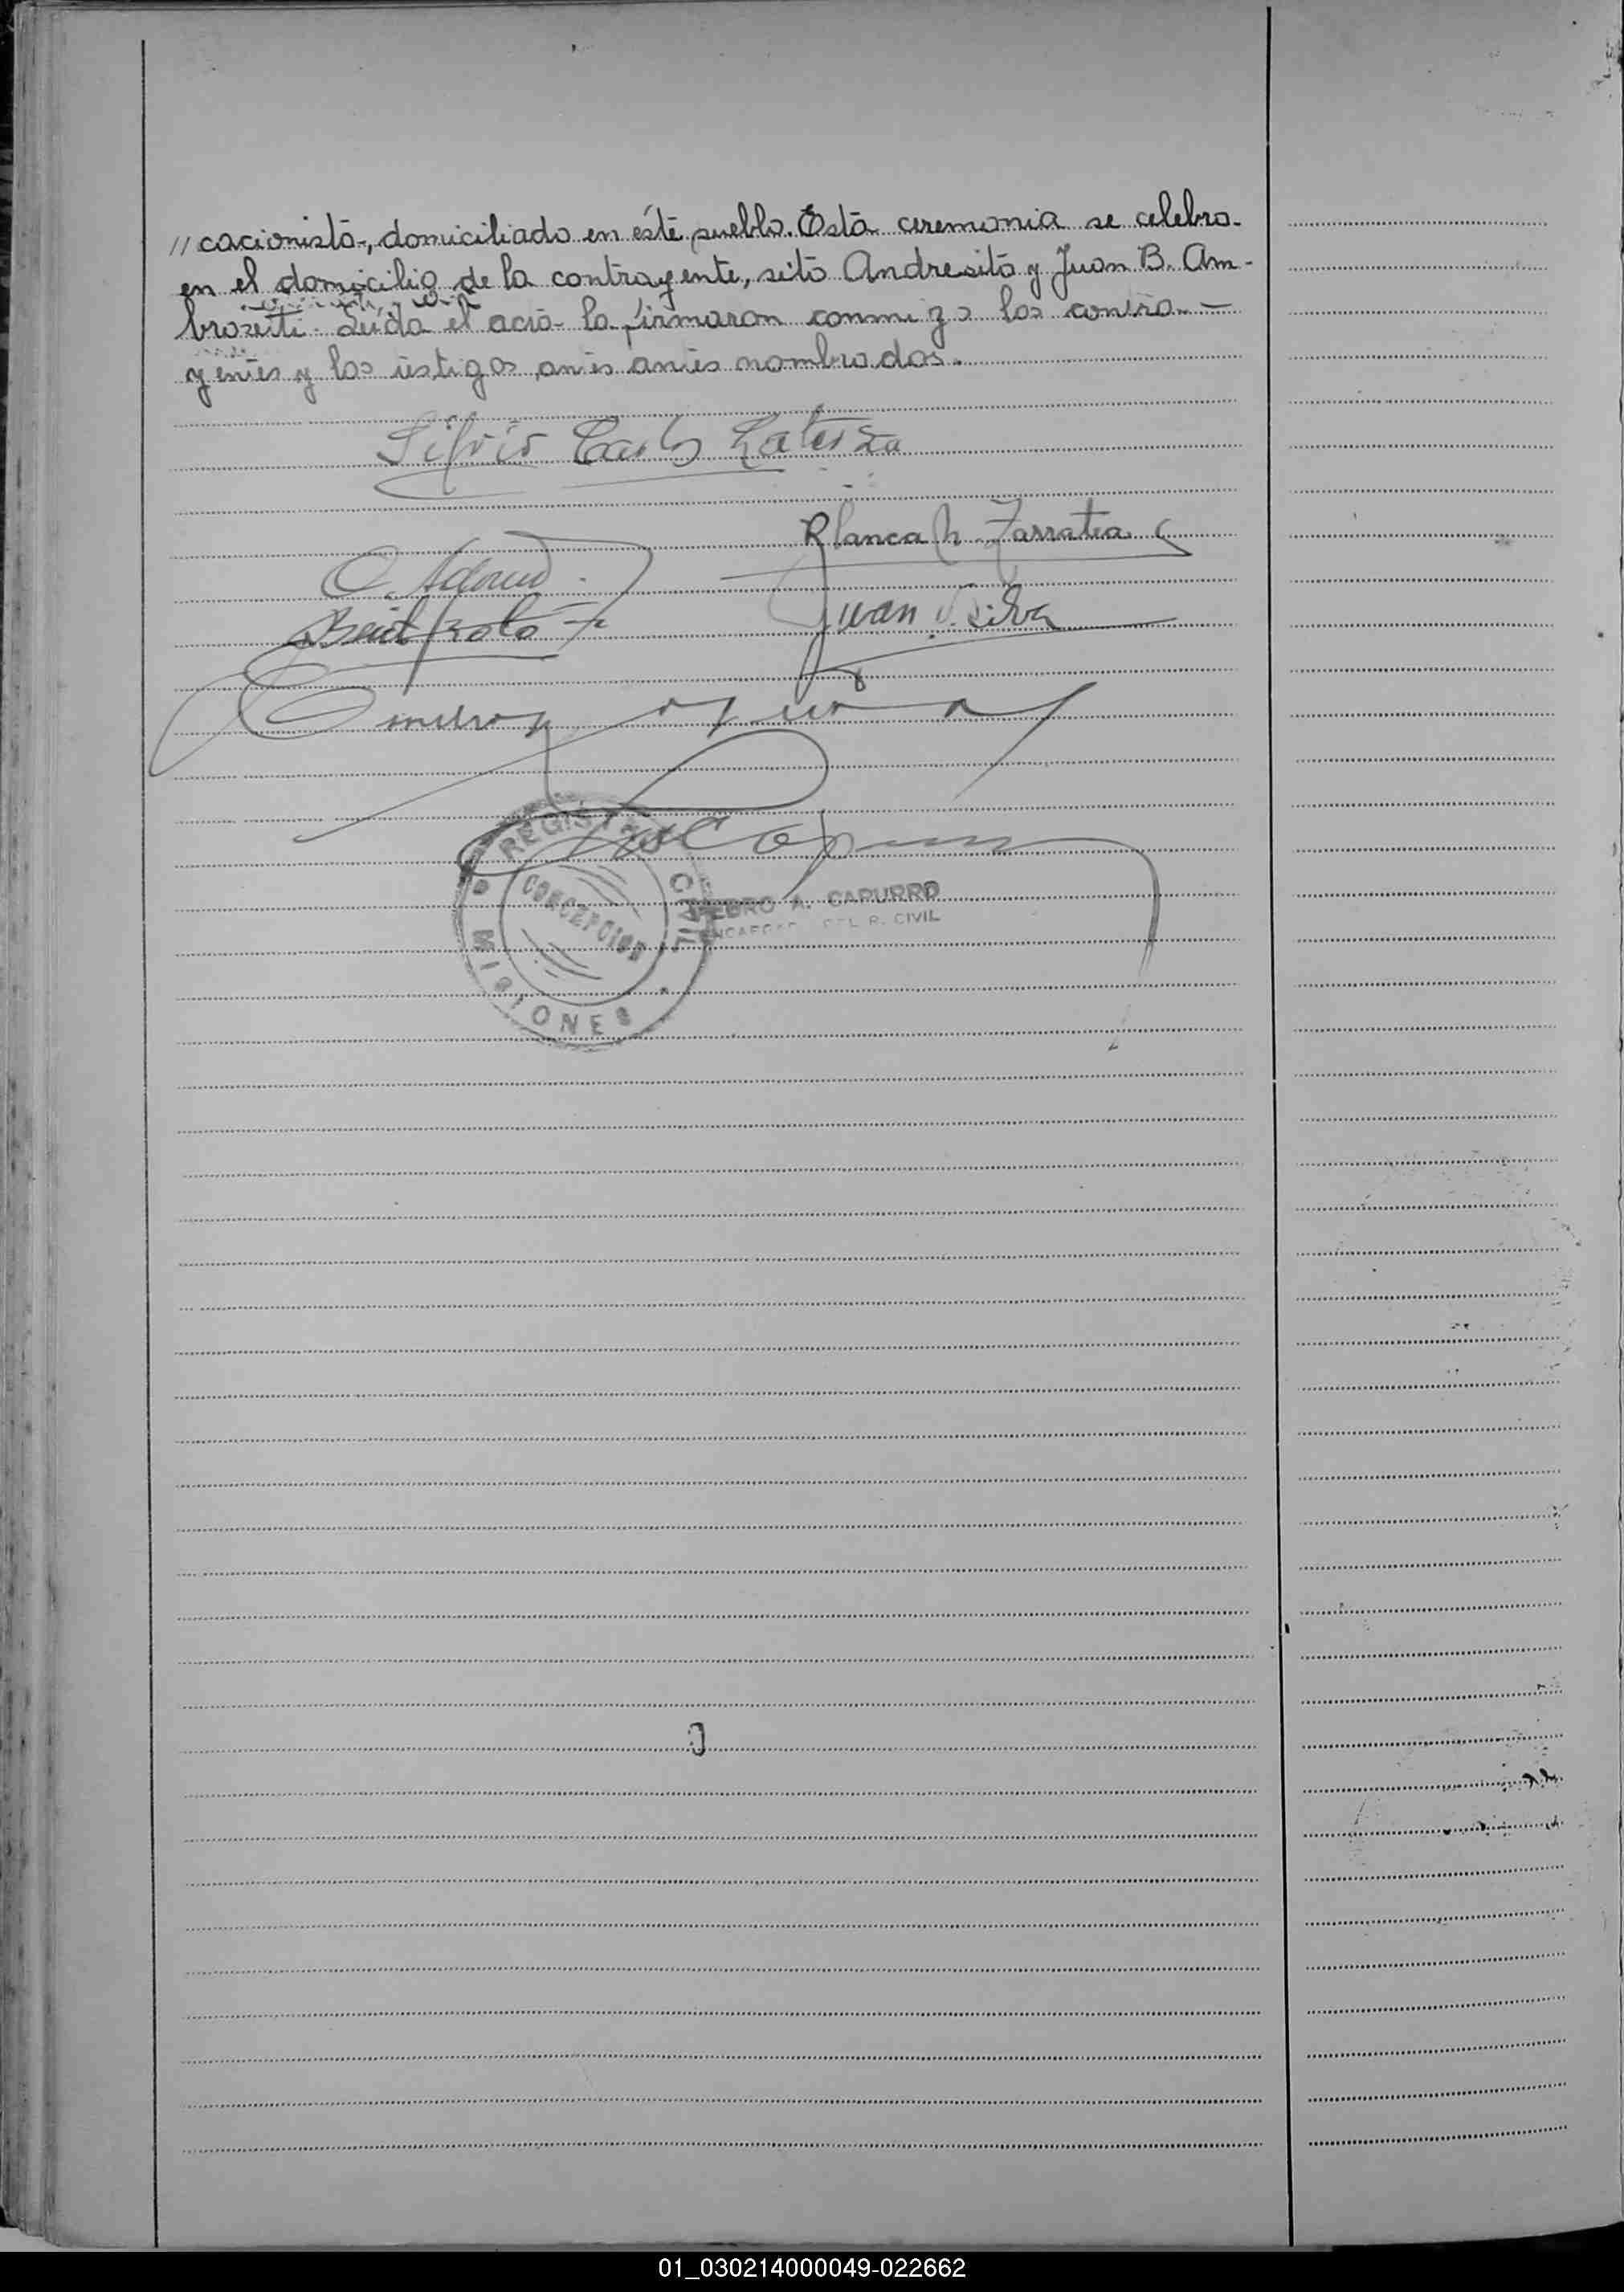 // cacionista, domiciliado en éste pueblo. Esta ceremonia se celebro
en el domicilio de la contrayente, sito Andresito y Juan B. Am-
brosetti. Leida el acta la firmaron conmigo los contra-
yentes y los testigos antes antes nombrados.
Silvio Carlos
Blanca N. Zarratea
Juan Silva
REGISTRO CIVIL
CONCEPCION
MISIONES
PEDRO A. CAPURRO
ENCARGADO DEL R. CIVIL
01_030214000049-022662